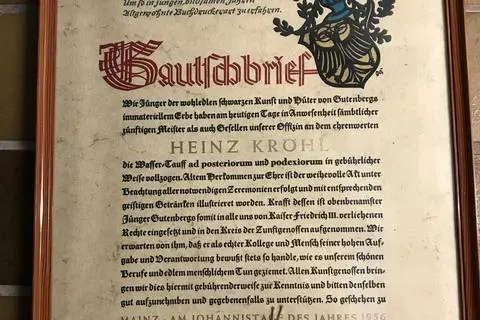 Um so in jungen, bildsamen Jahren
Altgewohnte Buchdruckerart zu erfahren.
Gautschbrief
Wir Jünger der wohledlen schwarzen Kunst und Hüter von Gutenbergs
immateriellem Erbe haben am heutigen Tage in Anwesenheit sämbtlicher
zünftigen Meister als auch Gesellen unserer Offizin an dem ehrenwerten
HEINZ KRÖHL
die Wasser-Tauff ad posteriorum und podexiorum in gebührlicher
Weise vollzogen. Altem Herkommen zur Ehre ist der weihevolle Akt unter
Beachtung aller notwendigen Zeremonien erfolgt und mit entsprechenden
geistigen Getränken illustrieret worden. Krafft dessen ist obenbenamster
Jünger Gutenbergs somit in alle uns von Kaiser Friedrich III. verliehenen
Rechte eingesetzt und in den Kreis der Zunftgenossen aufgenommen. Wir
erwarten von ihm, daß er als echter Kollege und Mensch seiner hohen Auf-
gabe und Verantwortung bewußt stets so handle, wie es unserem schönen
Berufe und edlem menschlichem Tun geziemet. Allen Kunstgenossen brin-
gen wir dies hiermit gebührenderweise zur Kenntnis und bitten denselben
gut aufzunehmen und gegebenenfalls zu unterstützen. So geschehen zu
MAINZ · AM JOHANNISTAGE DES JAHRES 1956